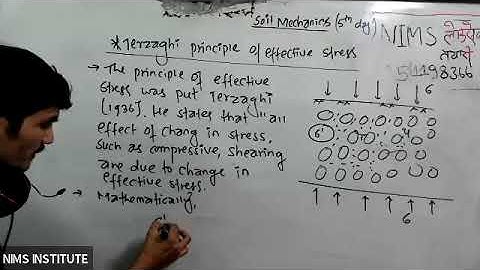 Soil Mechanics (5th day)
NIMS
*Terzaghi principle of effective stress
→ The principle of effective
stress was put Terzaghi
[1936]. He states that "all
effect of chang in stress,
such as compressive, shearing
are due to change in
effective stress.
→ Mathematically,
6
6
6
NIMS INSTITUTE